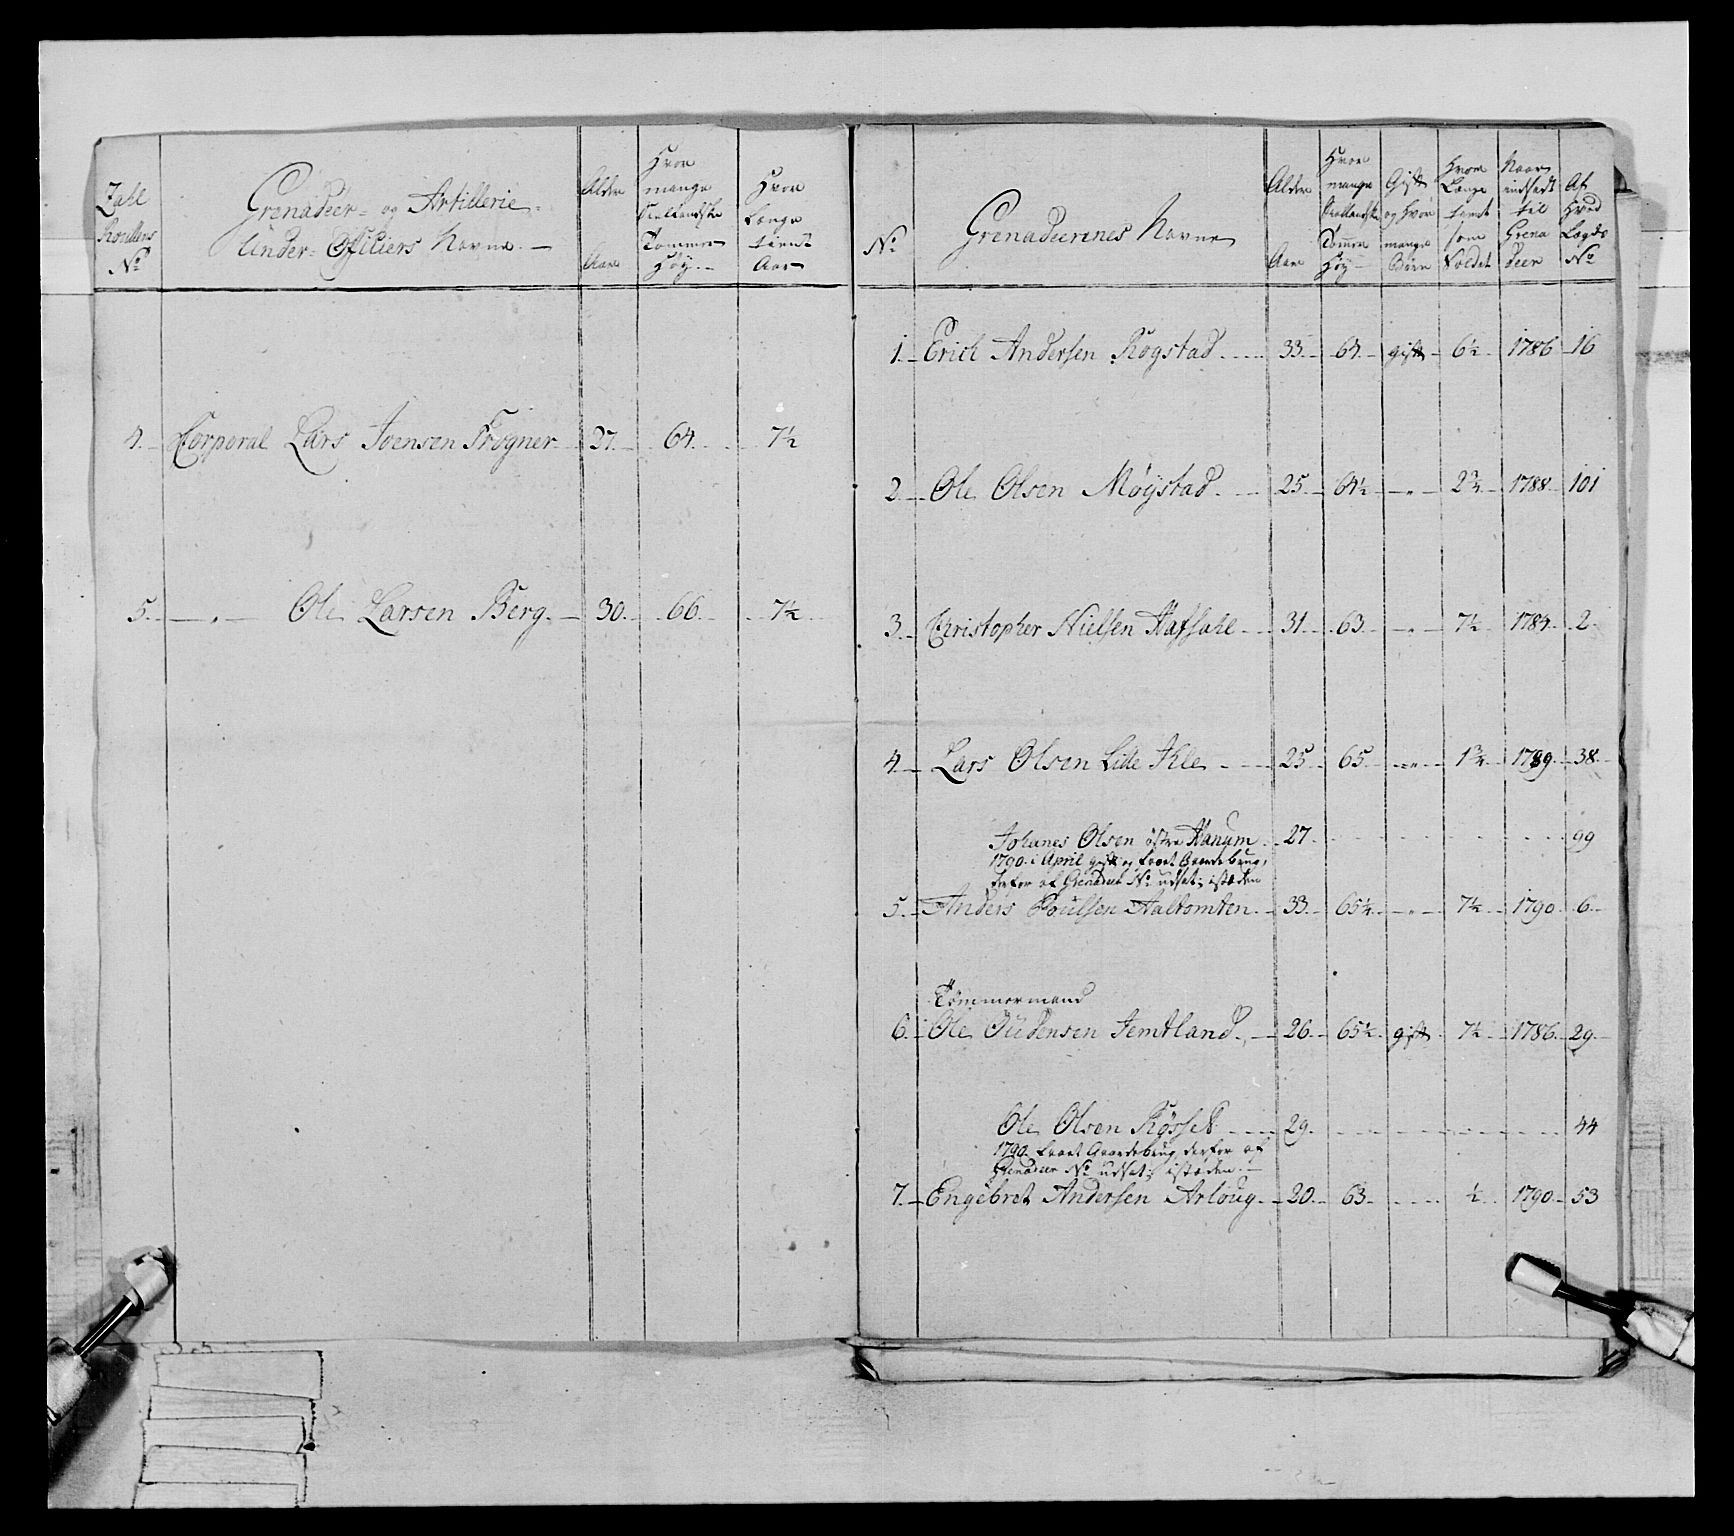 Zahl
Roullens
No
Grenadeer- og Artillerie-
Under-Officiers Navne. —
Alder
Aar
Hvor
mange
Siellandske
Tommer
Høy. -
Hvor
længe
tient
Aar
4. Corporal Lars Joensen Frogner 27. 64. 7½
5. —„— Ole Larsen Berg. 30. 66. 7½
No
Grenadeerenes Navne
Alder
Aar
Hvor
mange
Siellandske
Tommer
Høy
Gift
og hvor
mange
Børn
Hvor
Længe
tient
som
Soldat
Naar
indsadt
til
Grena
deer
Af
Hvad
Lægds
No
1. Erich Andersen Rogstad 33. 64. gift 6½ 1786 16
2. Ole Olsen Møystad. 25. 64½ „ 2¾ 1788 101
3. Christopher Nielsen Hafsahl 31. 63. „ 7½ 1784. 2.
4. Lars Olsen Lille Ihle 25. 65. „ 1¾ 1789. 38.
Johanes Olsen østre Hanum 27. 99
1790 i April gift og faaet Gaardebrug,
derfor af Grenadeer No udsat; istæden
5. Anders Poulsen Aaltomten 33. 65¼ „ 7½ 1790 6.
Tømmermand
6. Ole Budensen Jemtland. 26. 65½ gift 7½ 1786. 29.
Ole Olsen Røsset 29. 44
1790 faaet Gaardebrug, derfor af
Grenadeer No udsat; istæden. —
7. Engebret Andersen Arloug. 20. 63. ½ 1790. 53